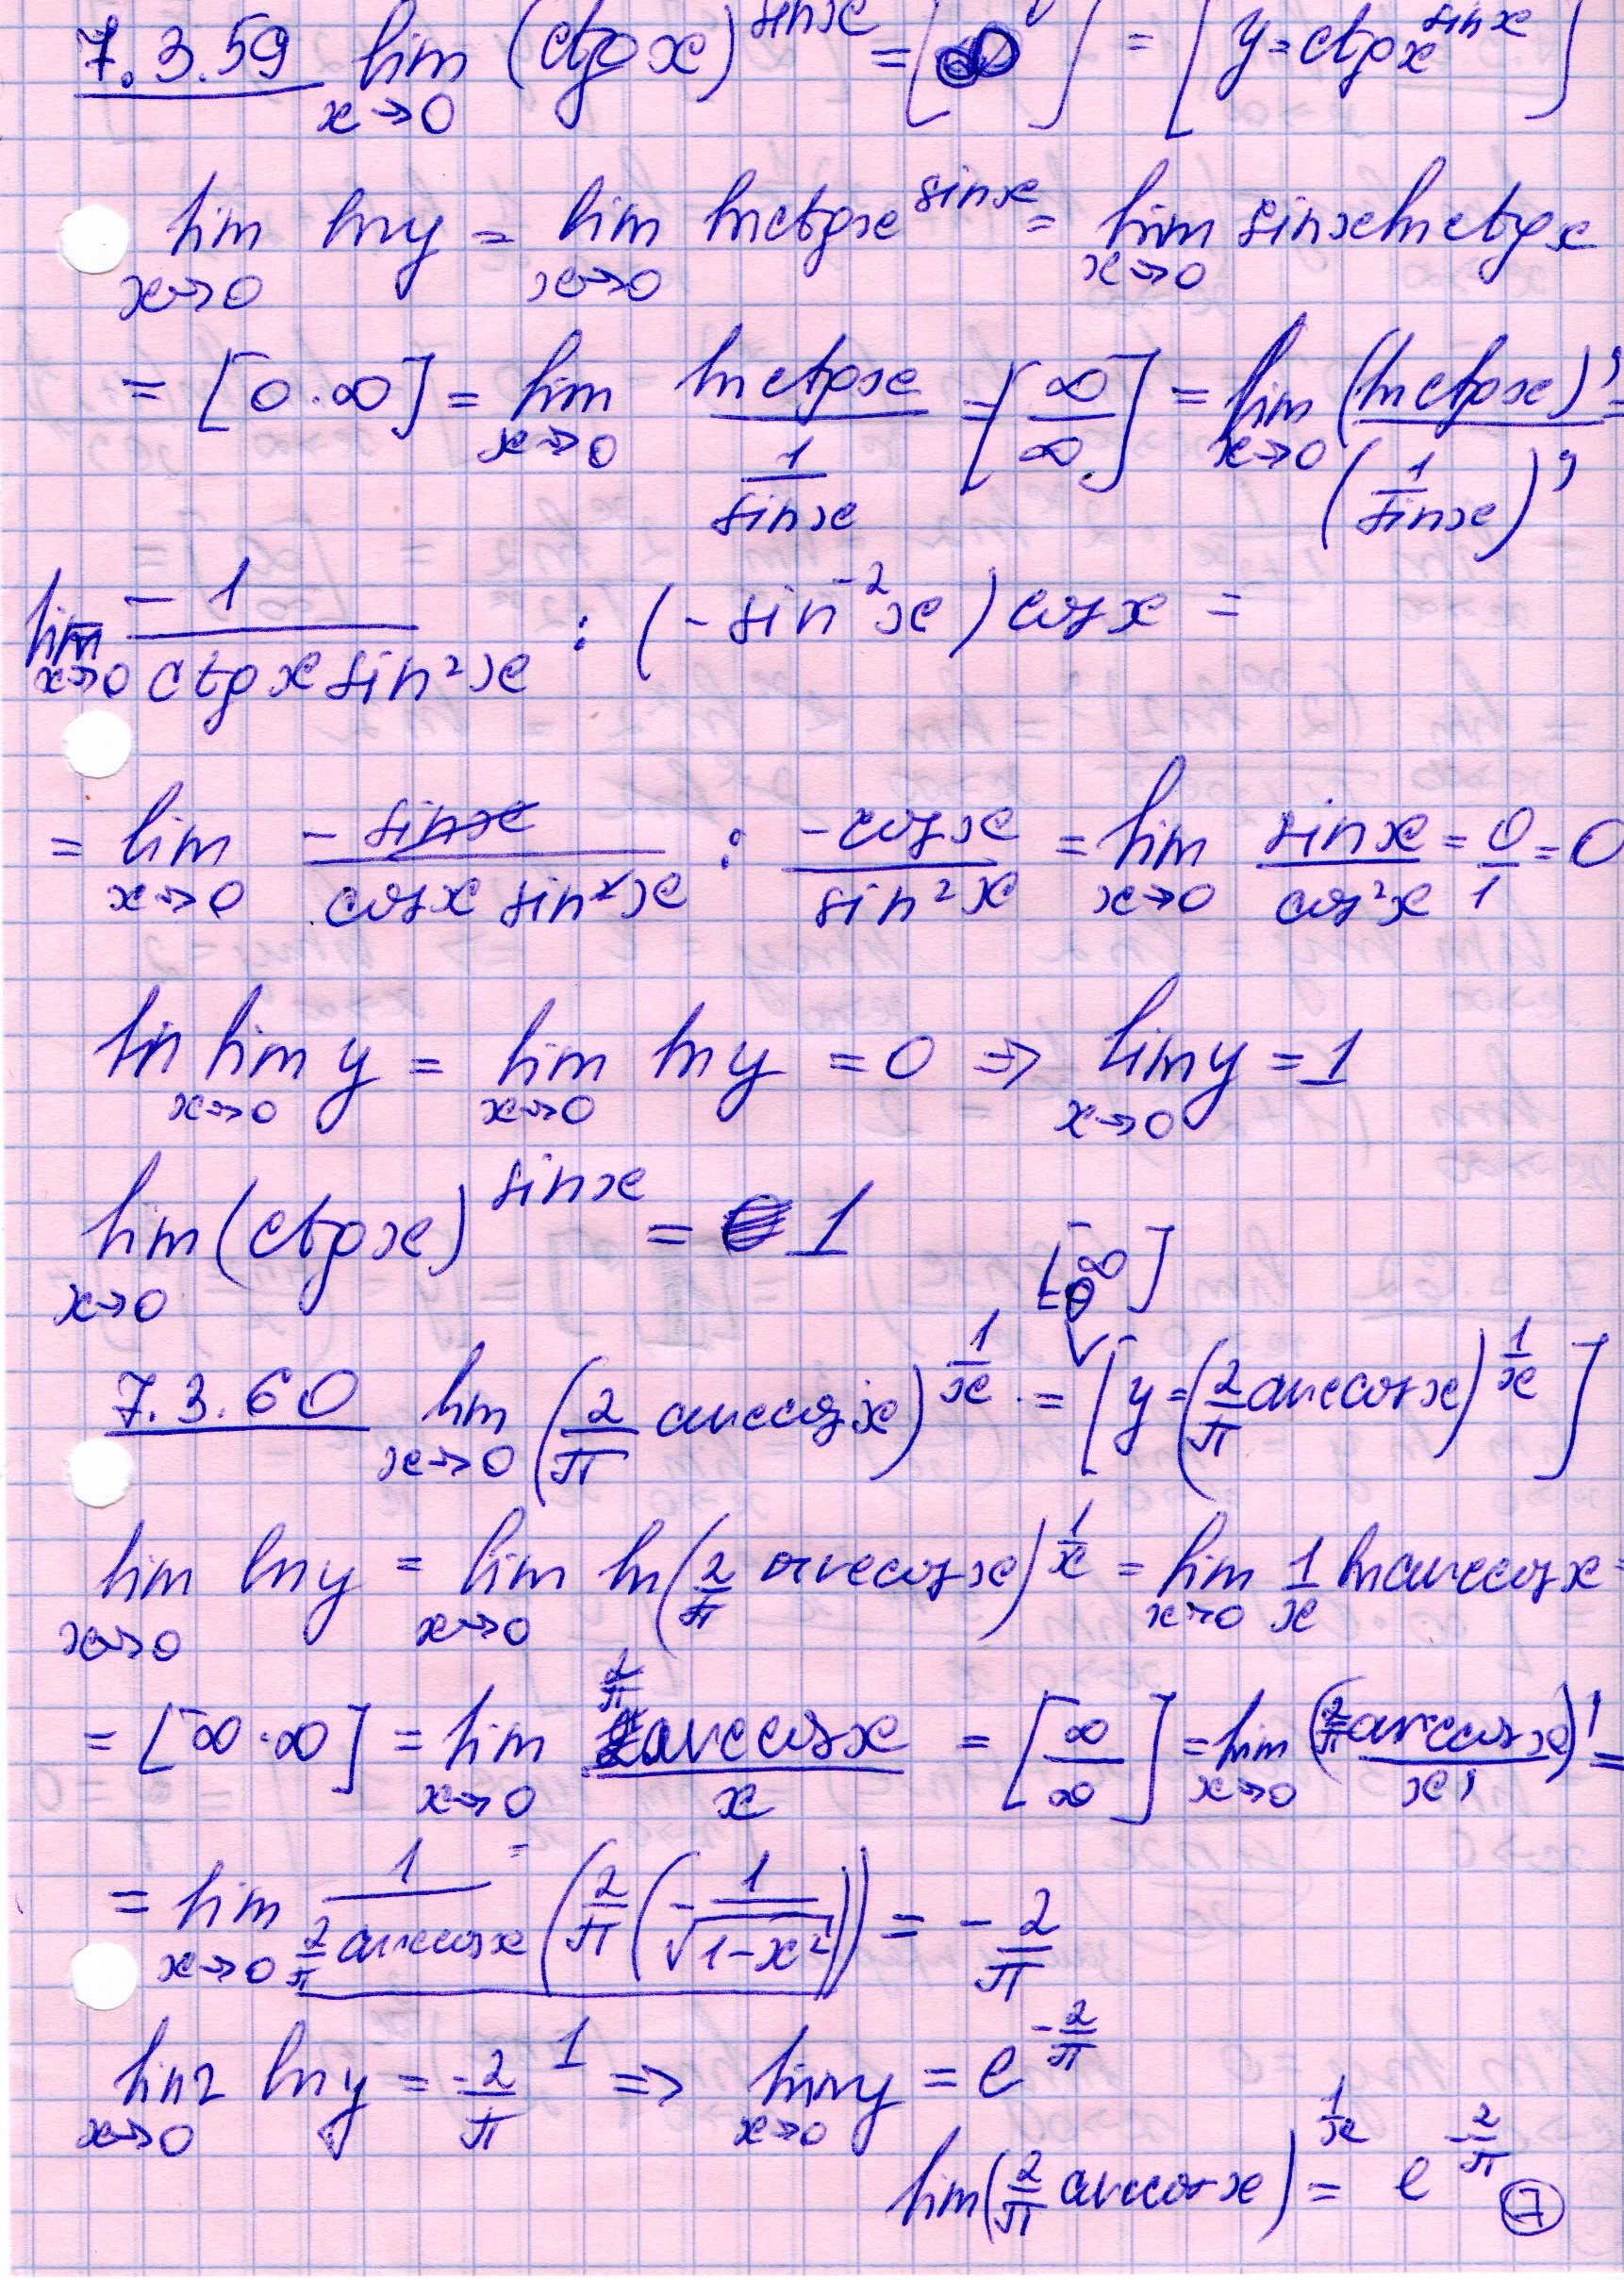 7.3.59 lim x→0 (ctg x)^sin x = [∞^0] = [y = ctg x^sin x]
lim x→0 ln y = lim x→0 ln ctg x^sin x = lim x→0 sin x ln ctg x
= [0·∞] = lim x→0 (ln ctg x)/(1/sin x) = [∞/∞] = lim x→0 (ln ctg x)'/(1/sin x)' =
lim x→0 -1/(ctg x sin² x) : (-sin⁻² x) cos x =
= lim x→0 -sin x/(cos x sin² x) : -cos x/sin² x = lim x→0 sin x/cos² x = 0/1 = 0
ln lim x→0 y = lim x→0 ln y = 0 ⇒ lim x→0 y = 1
lim x→0 (ctg x)^sin x = 1
7.3.60 lim x→0 (2/π arccos x)^(1/x) = [y = (2/π arccos x)^(1/x)]
lim x→0 ln y = lim x→0 ln(2/π arccos x)^(1/x) = lim x→0 1/x ln arccos x =
= [∞·∞] = lim x→0 (2/π arccos x)/x = [∞/∞] = lim x→0 (2/π arccos x)'/x' =
= lim x→0 1/(2/π arccos x) (2/π (-1/√(1-x²)))/1 = -2/π
lim x→0 ln y = -2/π ⇒ lim x→0 y = e^(-2/π)
lim (2/π arccos x)^(1/x) = e^(-2/π)
7